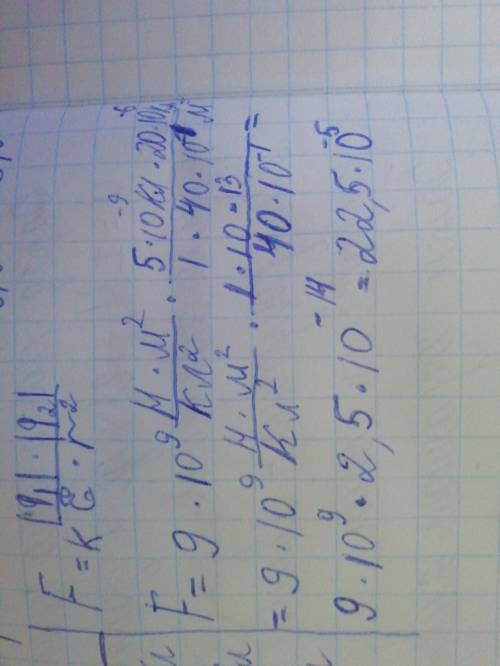 F = k |q₁| · |q₂| / ε · r²
F = 9 · 10⁹ Н · м² / Кл² · 5 · 10⁻⁹ Кл · 20 · 10 / 1 · 40 · 10⁻¹ м =
= 9 · 10⁹ Н · м² / Кл² · 1 · 10⁻¹³ / 40 · 10⁻¹ =
9 · 10⁹ · 2,5 · 10⁻¹⁴ = 22,5 · 10⁻⁵